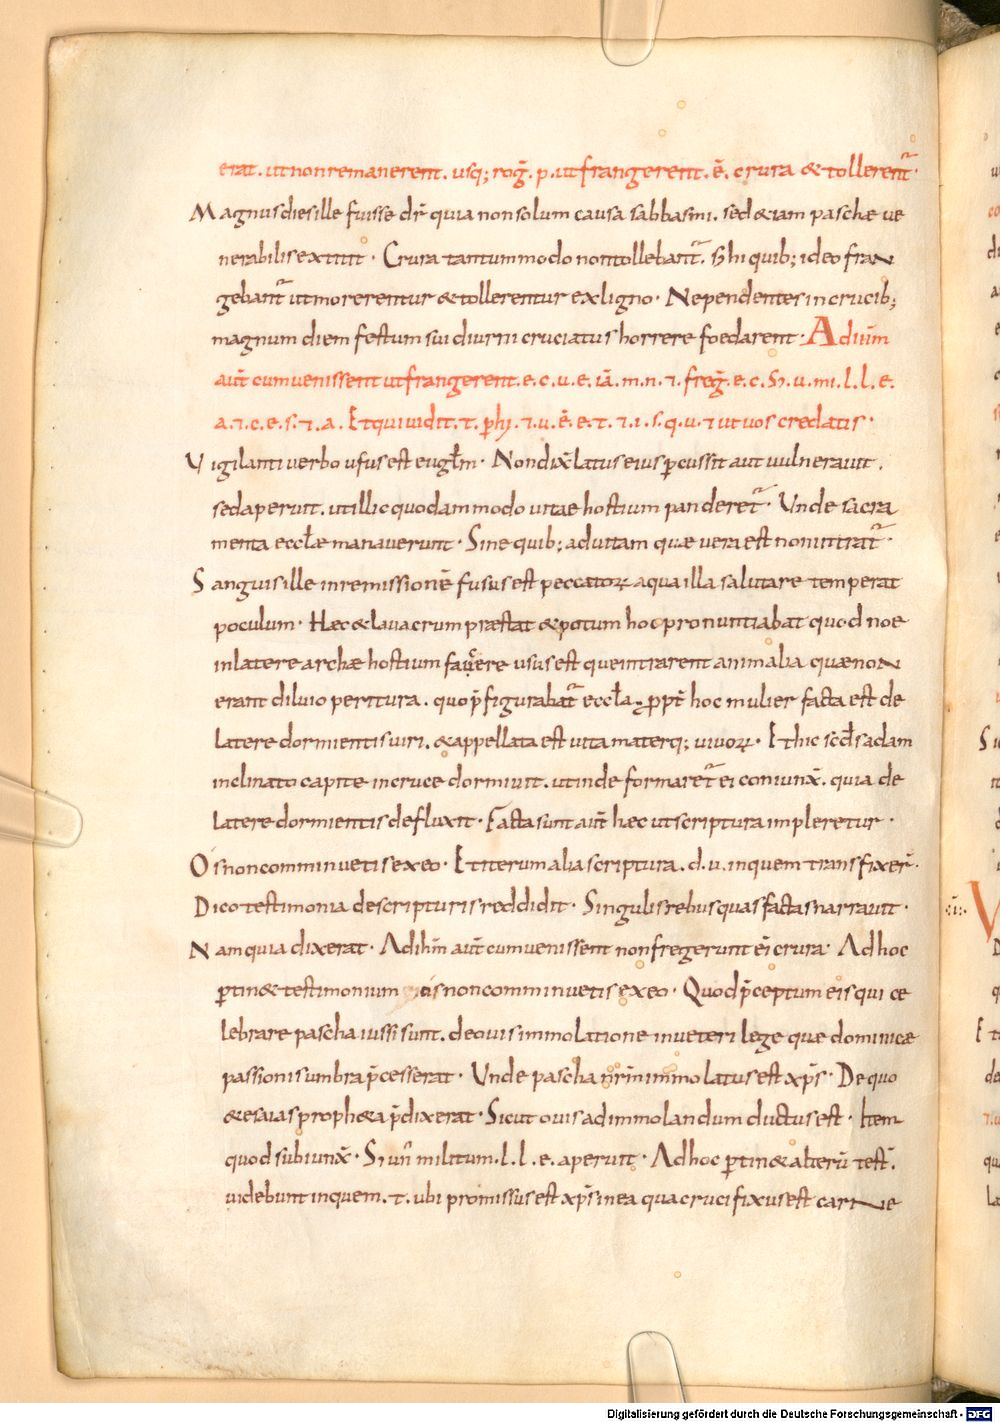 erat. ut non remanerent. usq; rog̅. p. ut frangerent. ē. crura & tollerent᷑.
Magnus dies ille fuisse dr̅ quia non solum causa sabbatismi. sed & iam paschæ ve
nerabilis extitit. Crura tantummodo non tollebant᷑. s; hi quib; ideo fran
gebant᷑ ut morerentur & tollerentur ex ligno. Ne pendentes in crucib;
magnum diem festum sui diurni cruciatus horrere foedarent. Ad ihm̅
aut̅ cum venissent ut frangerent. e. c. u. e. iā. m. n. ⁊. freg̅. e. c. S; u. mi. l. l. e.
a. ⁊. c. e. s. ⁊. a. Et qui vidit. t. phi. ⁊. u. ē. e. t. ⁊. i. s. q. u. ⁊ ut vos credatis.
Vigilanti verbo usus est eugl̅m. Non dix̅ latus eius p̲cussit aut vulneravit.
sed aperuit. ut illic quodammodo vitae hostium panderet᷑. Unde sacra
menta eccl̅æ manaverunt. Sine quib; ad vitam quæ vera est non intrat᷑.
Sanguis ille in remissionē fusus est peccatoꝝ aqua illa salutare temperat
poculum. Hæc & lavacrum præstat & potum hoc pronuntiabat quod noe
in latere archæ hostium facere iusus est que intrarent animalia quæ non
erant diluio peritura. quo p̅figurabat᷑ eccl̅a. p̲pt̅ hoc mulier facta est de
latere dormientis viri. & appellata est vita materq; vivoꝝ. Et hic sc̅d̅s adam
inclinato capite in cruce dormivit. ut inde formaret᷑ ei coniunx̅. quia de
latere dormientis defluxit. Facta sunt aut̅ hæc ut scriptura impleretur.
Os non comminuetis ex eo. Et iterum alia scriptura. d. v. in quem transfixer̅.
Dico testimonia de scripturis reddidit. Singulis rebus quas factas narravit.
Nam quia dixerat. Ad ihm̅ aut̅ cum venissent non fregerunt ei̅ crura. Ad hoc
p̲tin& testimonium os non comminuetis ex eo. Quod p̅ceptum eis qui ce
lebrare pascha iussi sunt. de ovis immolatione in veteri lege quæ dominicæ
passionis umbra p̅cesserat. Unde pascha nr̅m immolatus est xp̅s. De quo
& esaias proph&a p̅dixerat. Sicut ovis ad immolandum ductus est. Item
quod subiunx̅. S; un̅ militum. l. l. e. aperuit. Ad hoc p̲tin& alterū test̅.
videbunt inquem. t. ubi promissus est xp̅s in ea qua crucifixus est carne
Digitalisierung gefördert durch die Deutsche Forschungsgemeinschaft - DFG